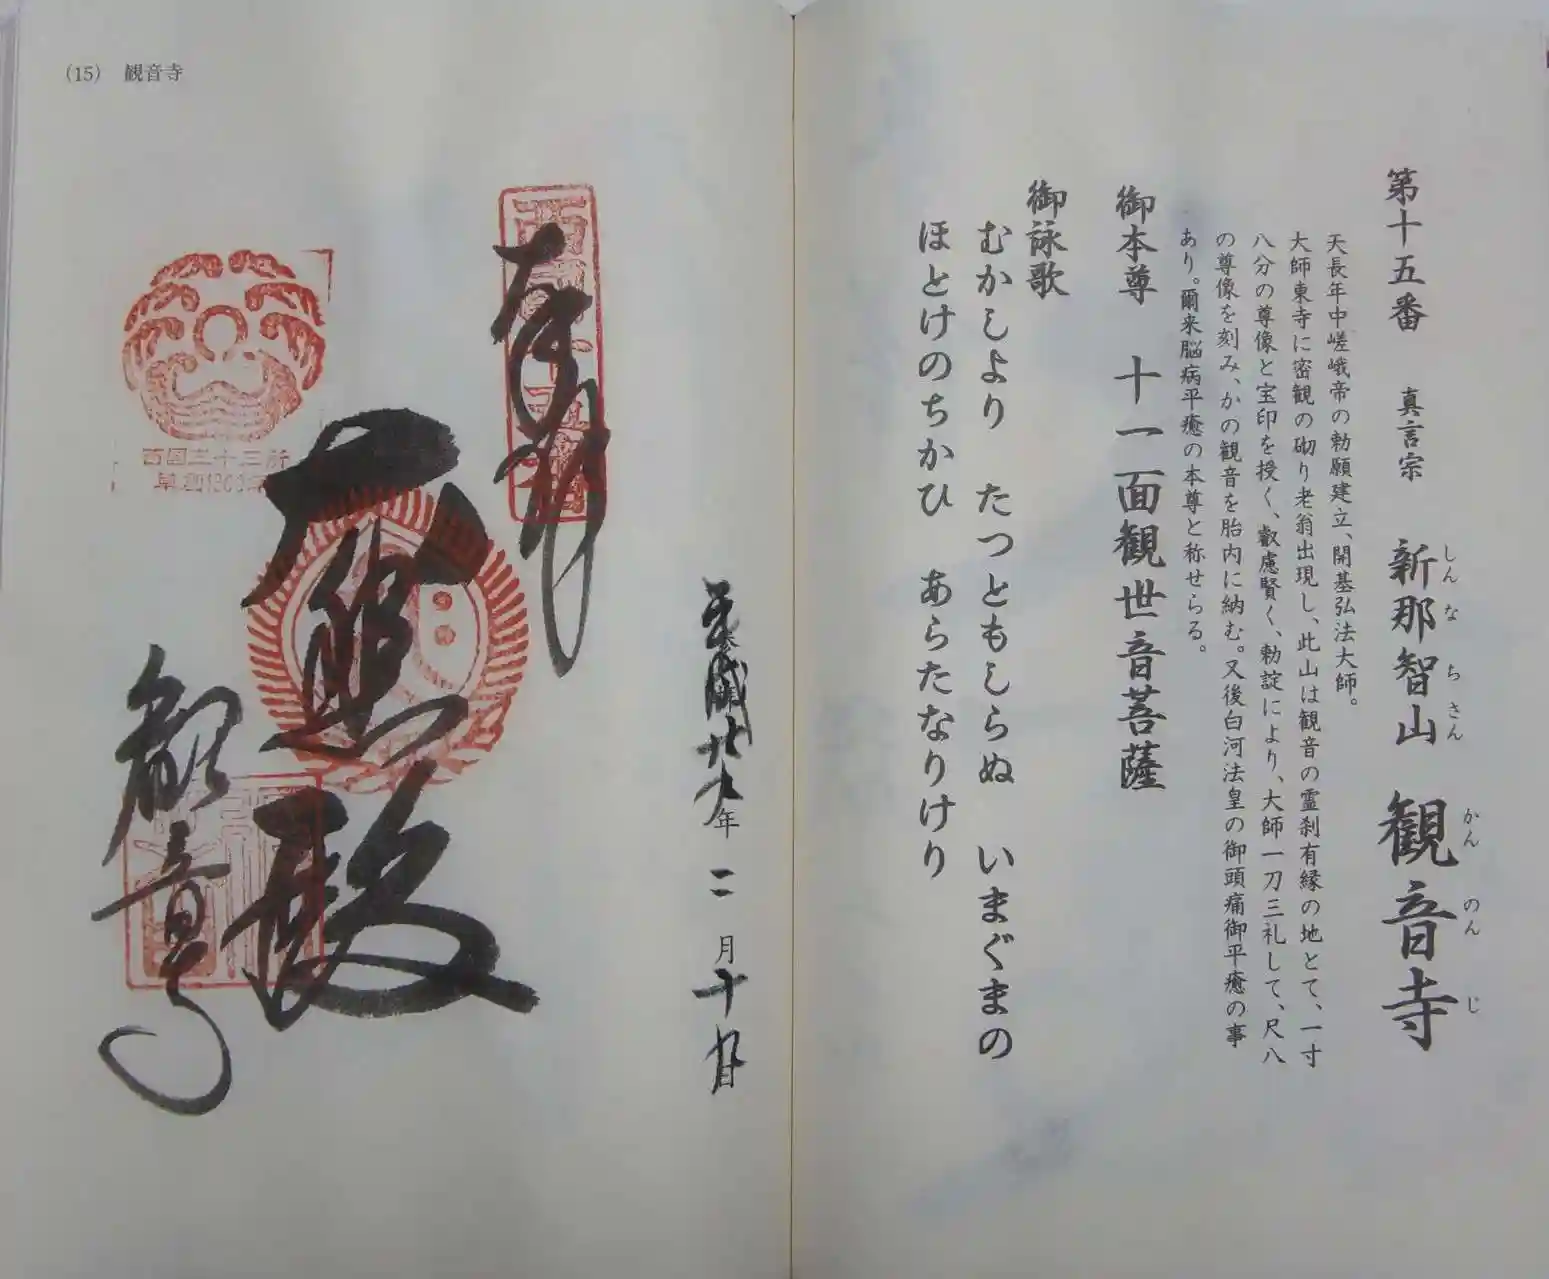 第十五番 真言宗 新那智山 観音寺
しんなちさん かんのんじ
天長年中嵯峨帝の勅願建立、開基弘法大師。
大師東寺に密観の砌り老翁出現し、此山は観音の霊刹有縁の地とて、一寸
八分の尊像と宝印を授く、叡慮賢く、勅諚により、大師一刀三礼して、尺八
の尊像を刻み、かの観音を胎内に納む。又後白河法皇の御頭痛御平癒の事
あり。爾来脳病平癒の本尊と称せらる。
御本尊 十一面観世音菩薩
御詠歌
むかしより たつともしらぬ いまぐまの
ほとけのちかひ あらたなりけり
(15) 観音寺
平成廿九年 二月十九日
奉拝
大悲殿
観音寺
西国三十三所
草創1300年